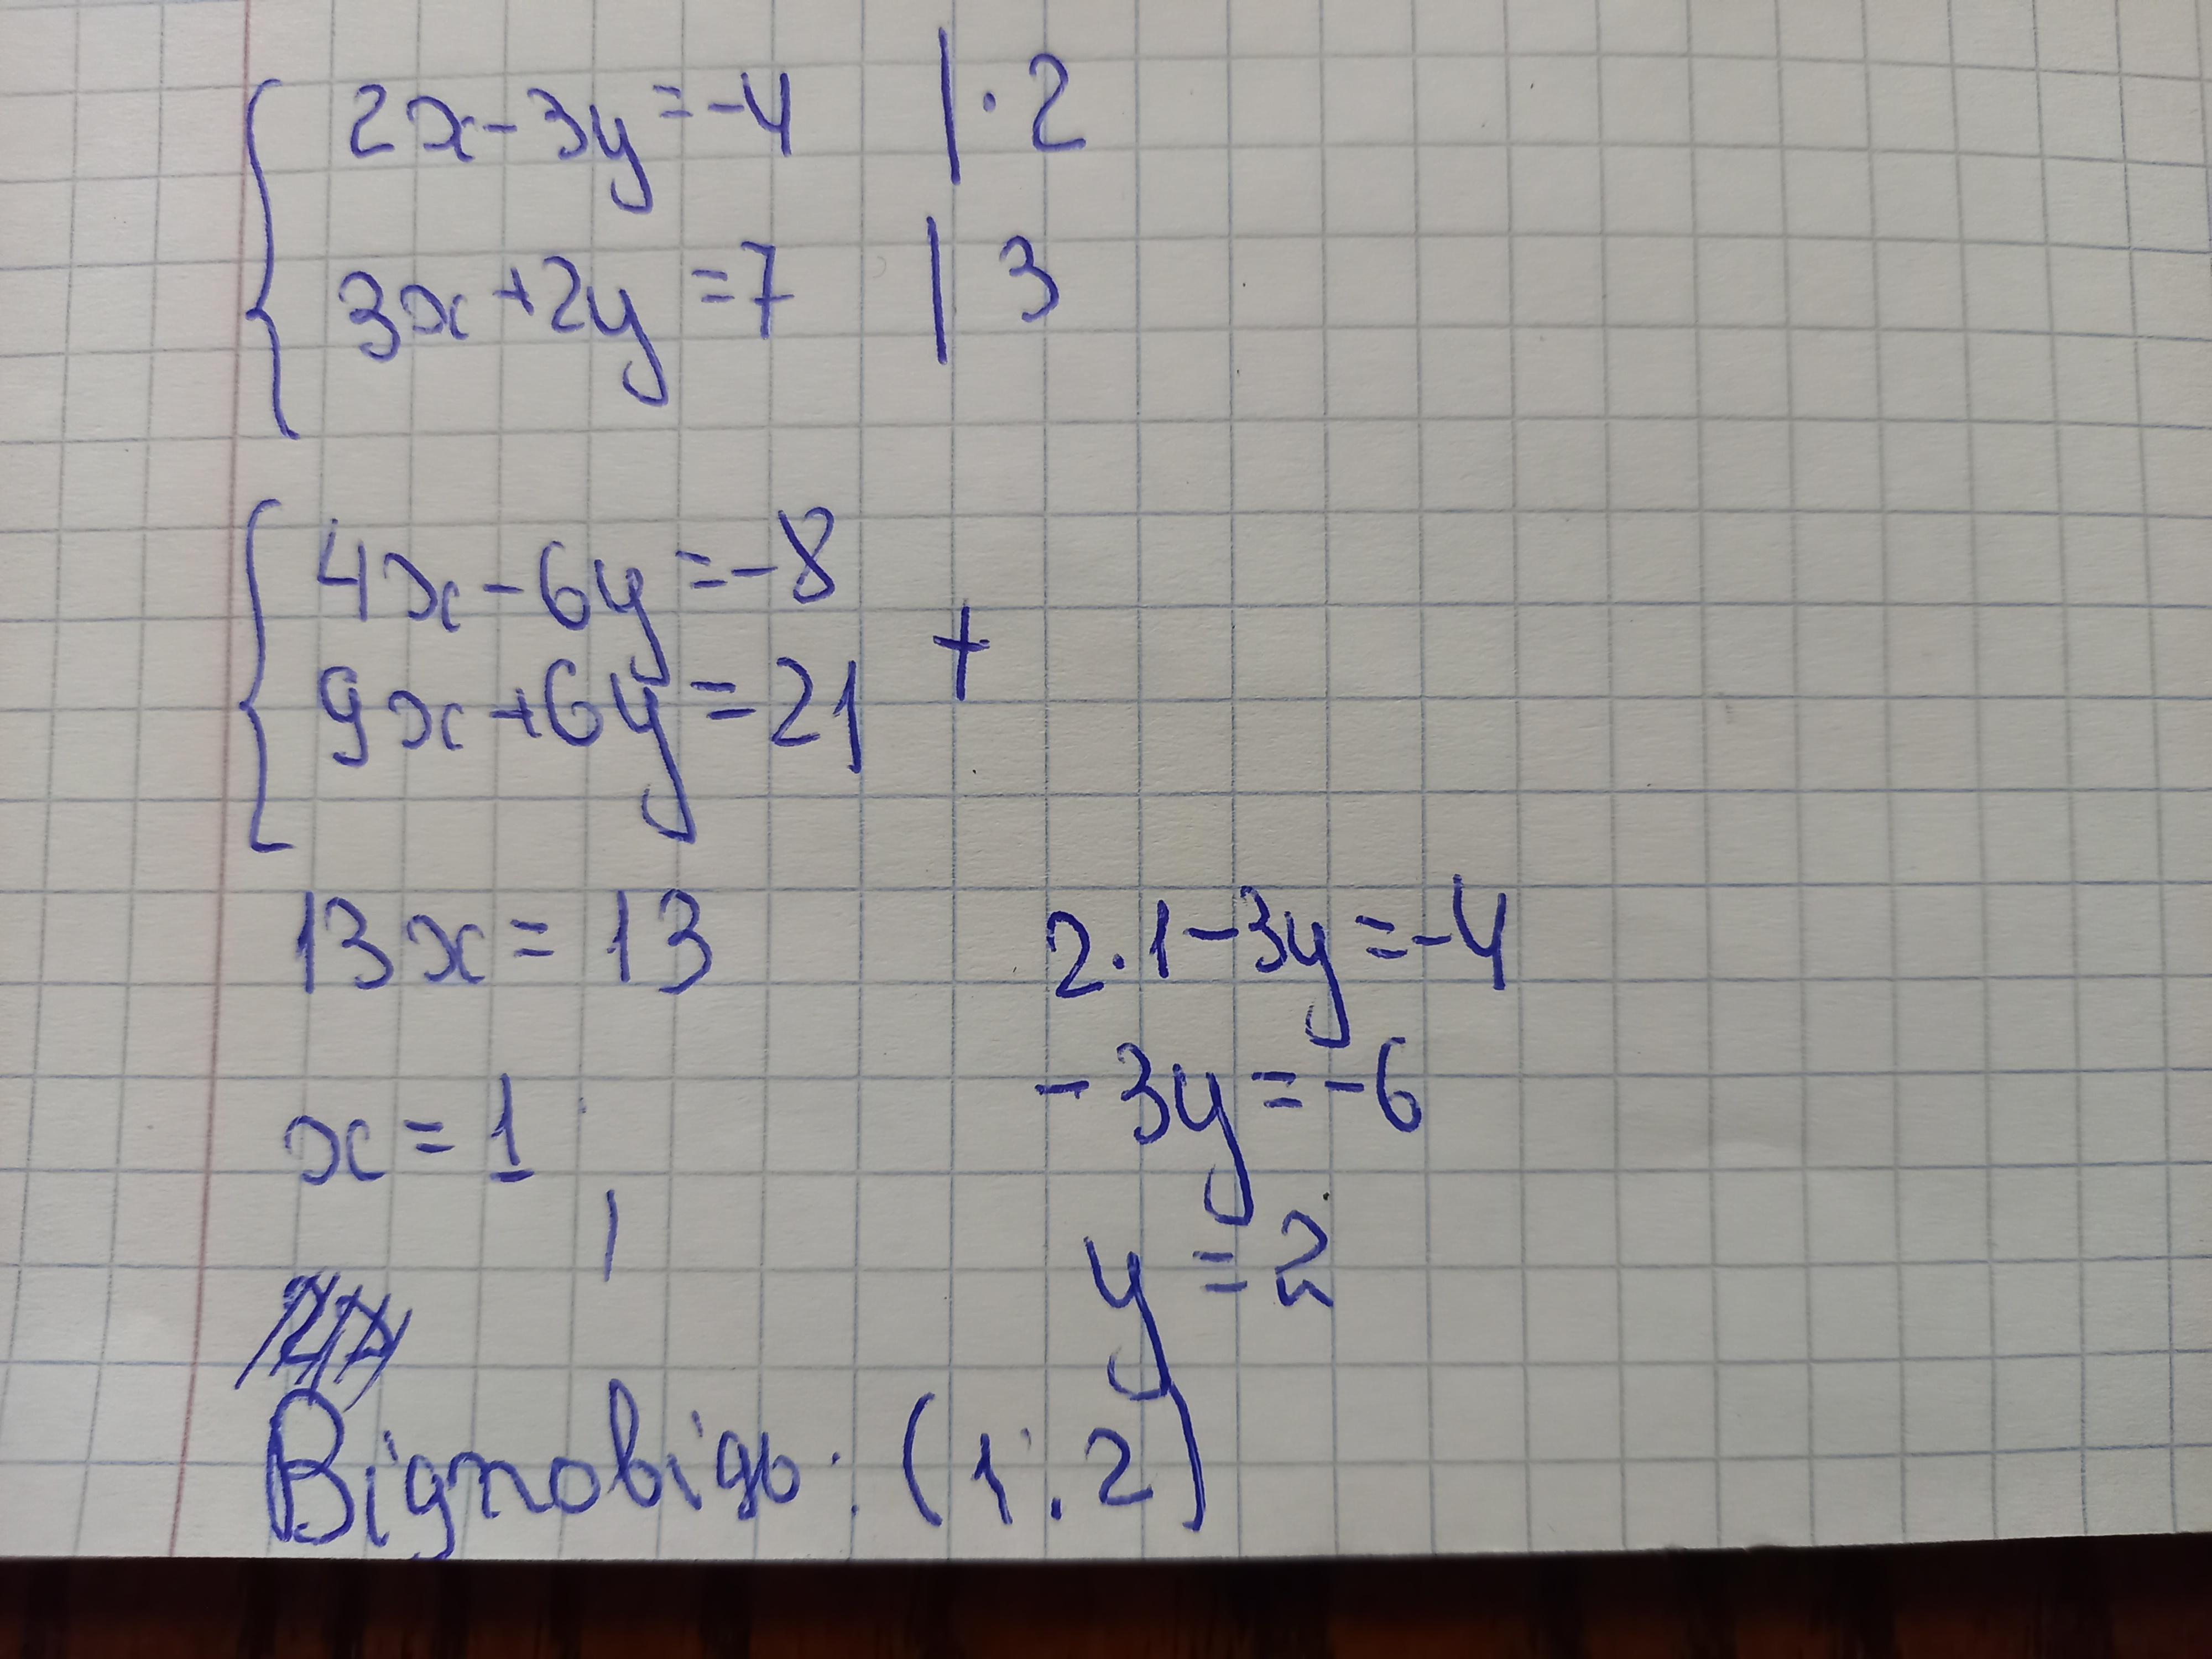 2x-3y=-4 |·2
3x+2y=7 | 3
4x-6y=-8
+
9x+6y=21
13x=13
x=1
2·1-3y=-4
-3y=-6
y=2
Відповідь: (1;2)